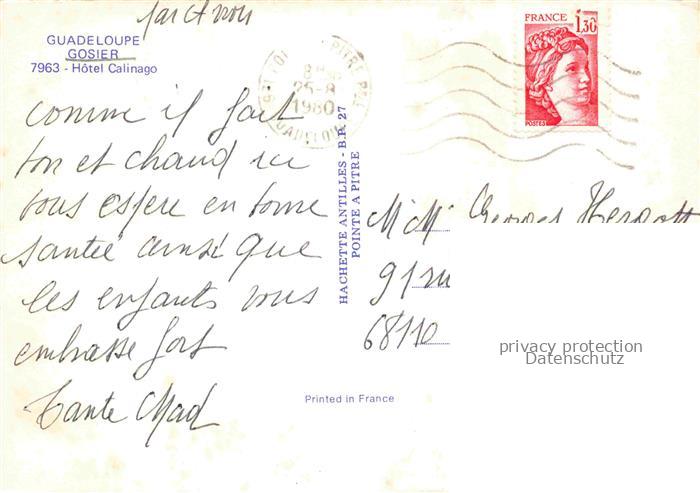 GUADELOUPE
GOSIER
7963 - Hôtel Calinago
FRANCE
1,30
POSTES
25-8
1980
comme il fait
bon et chaud ici
vous espere en bonne
santée ainsi que
les enfants vous
embrasse fort
Tante Mad
HACHETTE ANTILLES - B.P. 27
POINTE A PITRE
M M Georges
91 ru
68110
privacy protection
Datenschutz
Printed in France